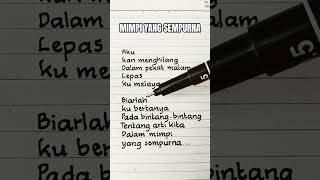 MIMPI YANG SEMPURNA
Aku
kan menghilang
Dalam pekat malam
Lepas
ku melaya
Biarlah
ku bertanya
Pada bintang-bintang
Tentang arti kita
Dalam mimpi
yang sempurna...
5